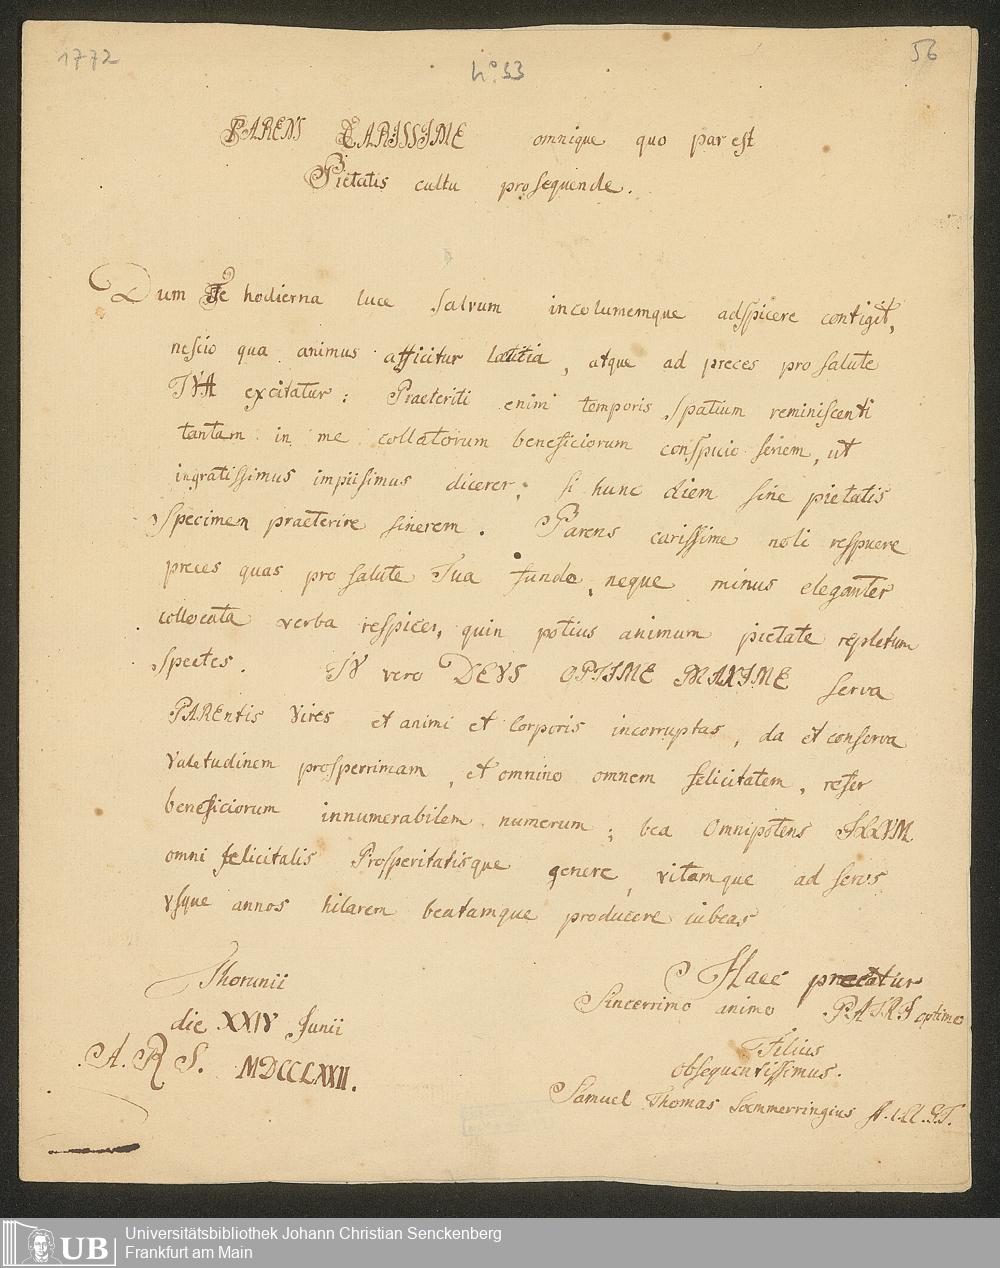 1772
56
No. 53
PARENS CARISSIME omnique quo par est
Pietatis cultu prosequende.
Dum Te hodierna luce salvum incolumemque adspicere contigit,
nescio qua animus afficitur laetitia, atque ad preces pro salute
TVA excitatur: Praeteriti enim temporis spatium reminiscenti
tantam in me collatorum beneficiorum conspicio seriem, ut
ingratissimus impiisimus dicerer, si hunc diem sine pietatis
specimen praeterire sinerem. Parens carissime noli respuere
preces quas pro salute Tua fundo, neque minus eleganter
collocata verba respices, quin potius animum pietate repletum
spectes. TV vero DEVS OPTIME MAXIME serva
PARENtis vires et animi et Corporis incorruptas, da et conserva
Valetudinem prosperrimam, et omnino omnem felicitatem, refer
beneficiorum innumerabilem numerum; bea Omnipotens ILLVM
omni felicitatis Prosperitatisque genere, vitamque ad seros
vsque annos hilarem beatamque producere iubeas
Haec precatur
Thorunii
Sincerrimo animo PATRI optimo
die XXIV Junii
Filius
obsequentissimus.
A. R. S. MDCCLXXII.
Samuel Thomas Soemmerringius
Universitätsbibliothek Johann Christian Senckenberg
UB
Frankfurt am Main